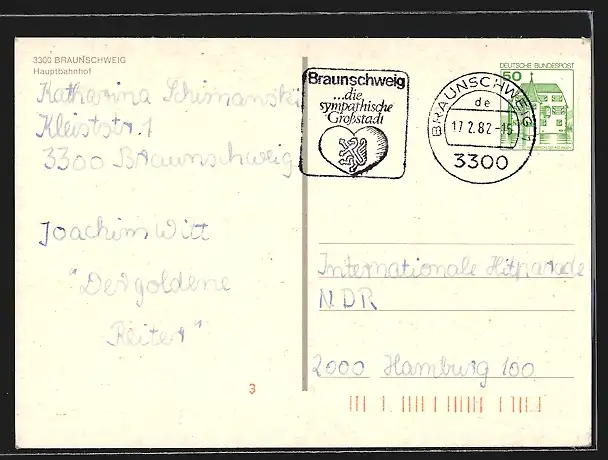 3300 BRAUNSCHWEIG
Hauptbahnhof
Katharina Schimanski
Kleiststr. 1
3300 Braunschweig
Joachim Witt
"Der goldene
Reiter"
3
Braunschweig
...die
sympathische
Großstadt
BRAUNSCHWEIG 1
de
17.2.82-15
3300
DEUTSCHE BUNDESPOST
50
Internationale Hitparade
NDR
2000 Hamburg 100